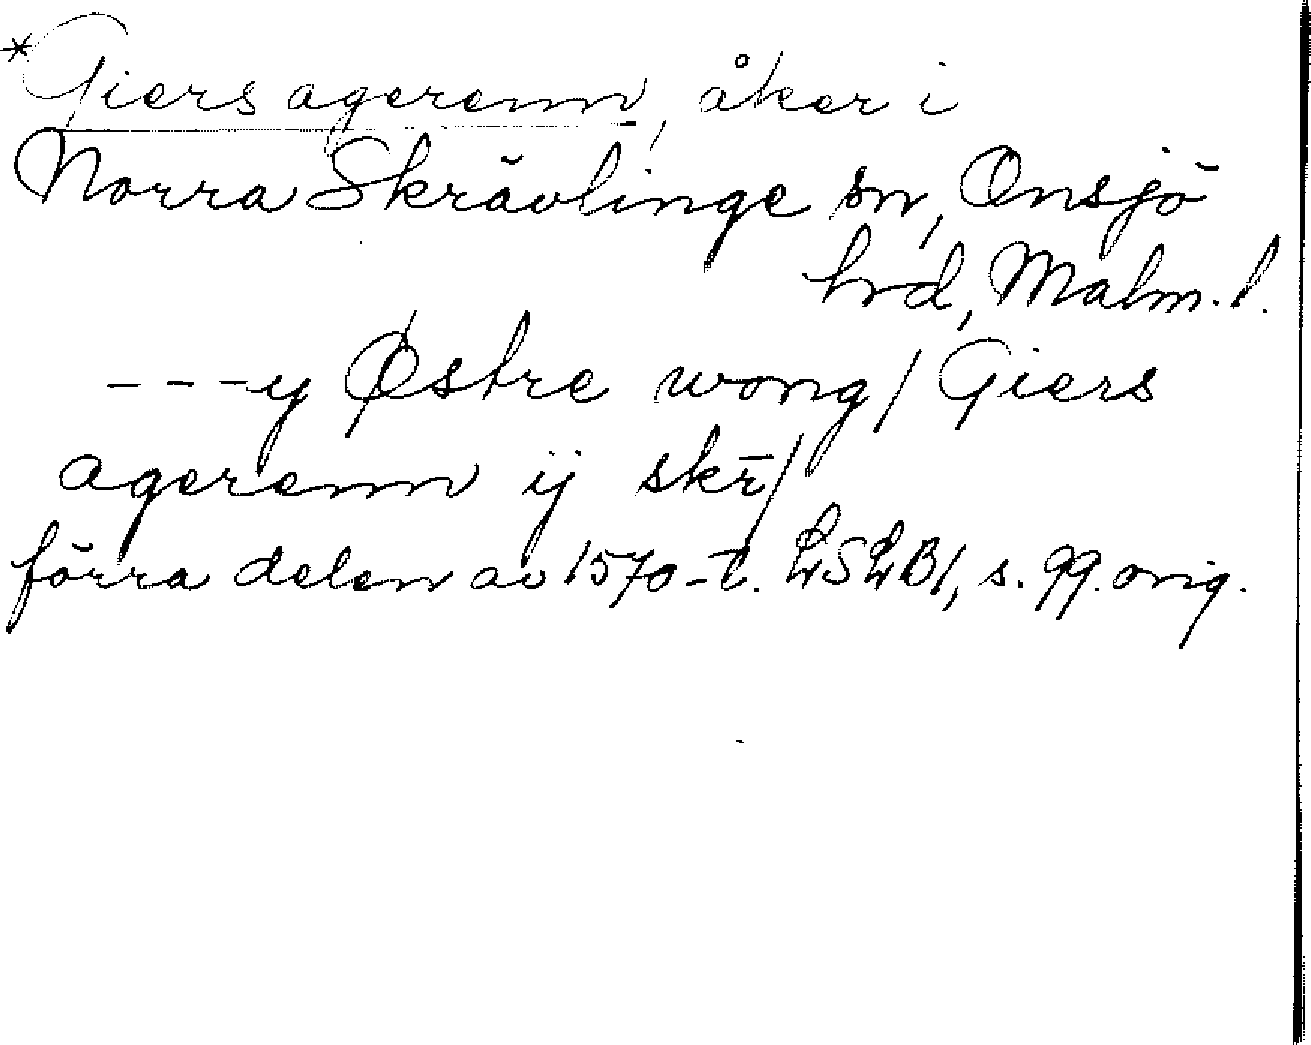 *Giers agerenn, åker i
Norra Skrävlinge sn, Onsjö
hrd, Malm. l.
---y Østre wong / Giers
agerenn ij skr̄/
förra delen av 1570-t. LSLB1, s. 99. orig.